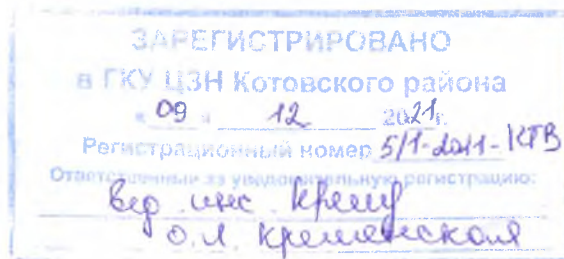 ЗАРЕГИСТРИРОВАНО
в ГКУ ЦЗН Котовского района
« 09 » 12 2021г.
Регистрационный номер 5/1-2021-КТВ
Ответственный за уведомительную регистрацию:
вед инс
О.Л. Кременская